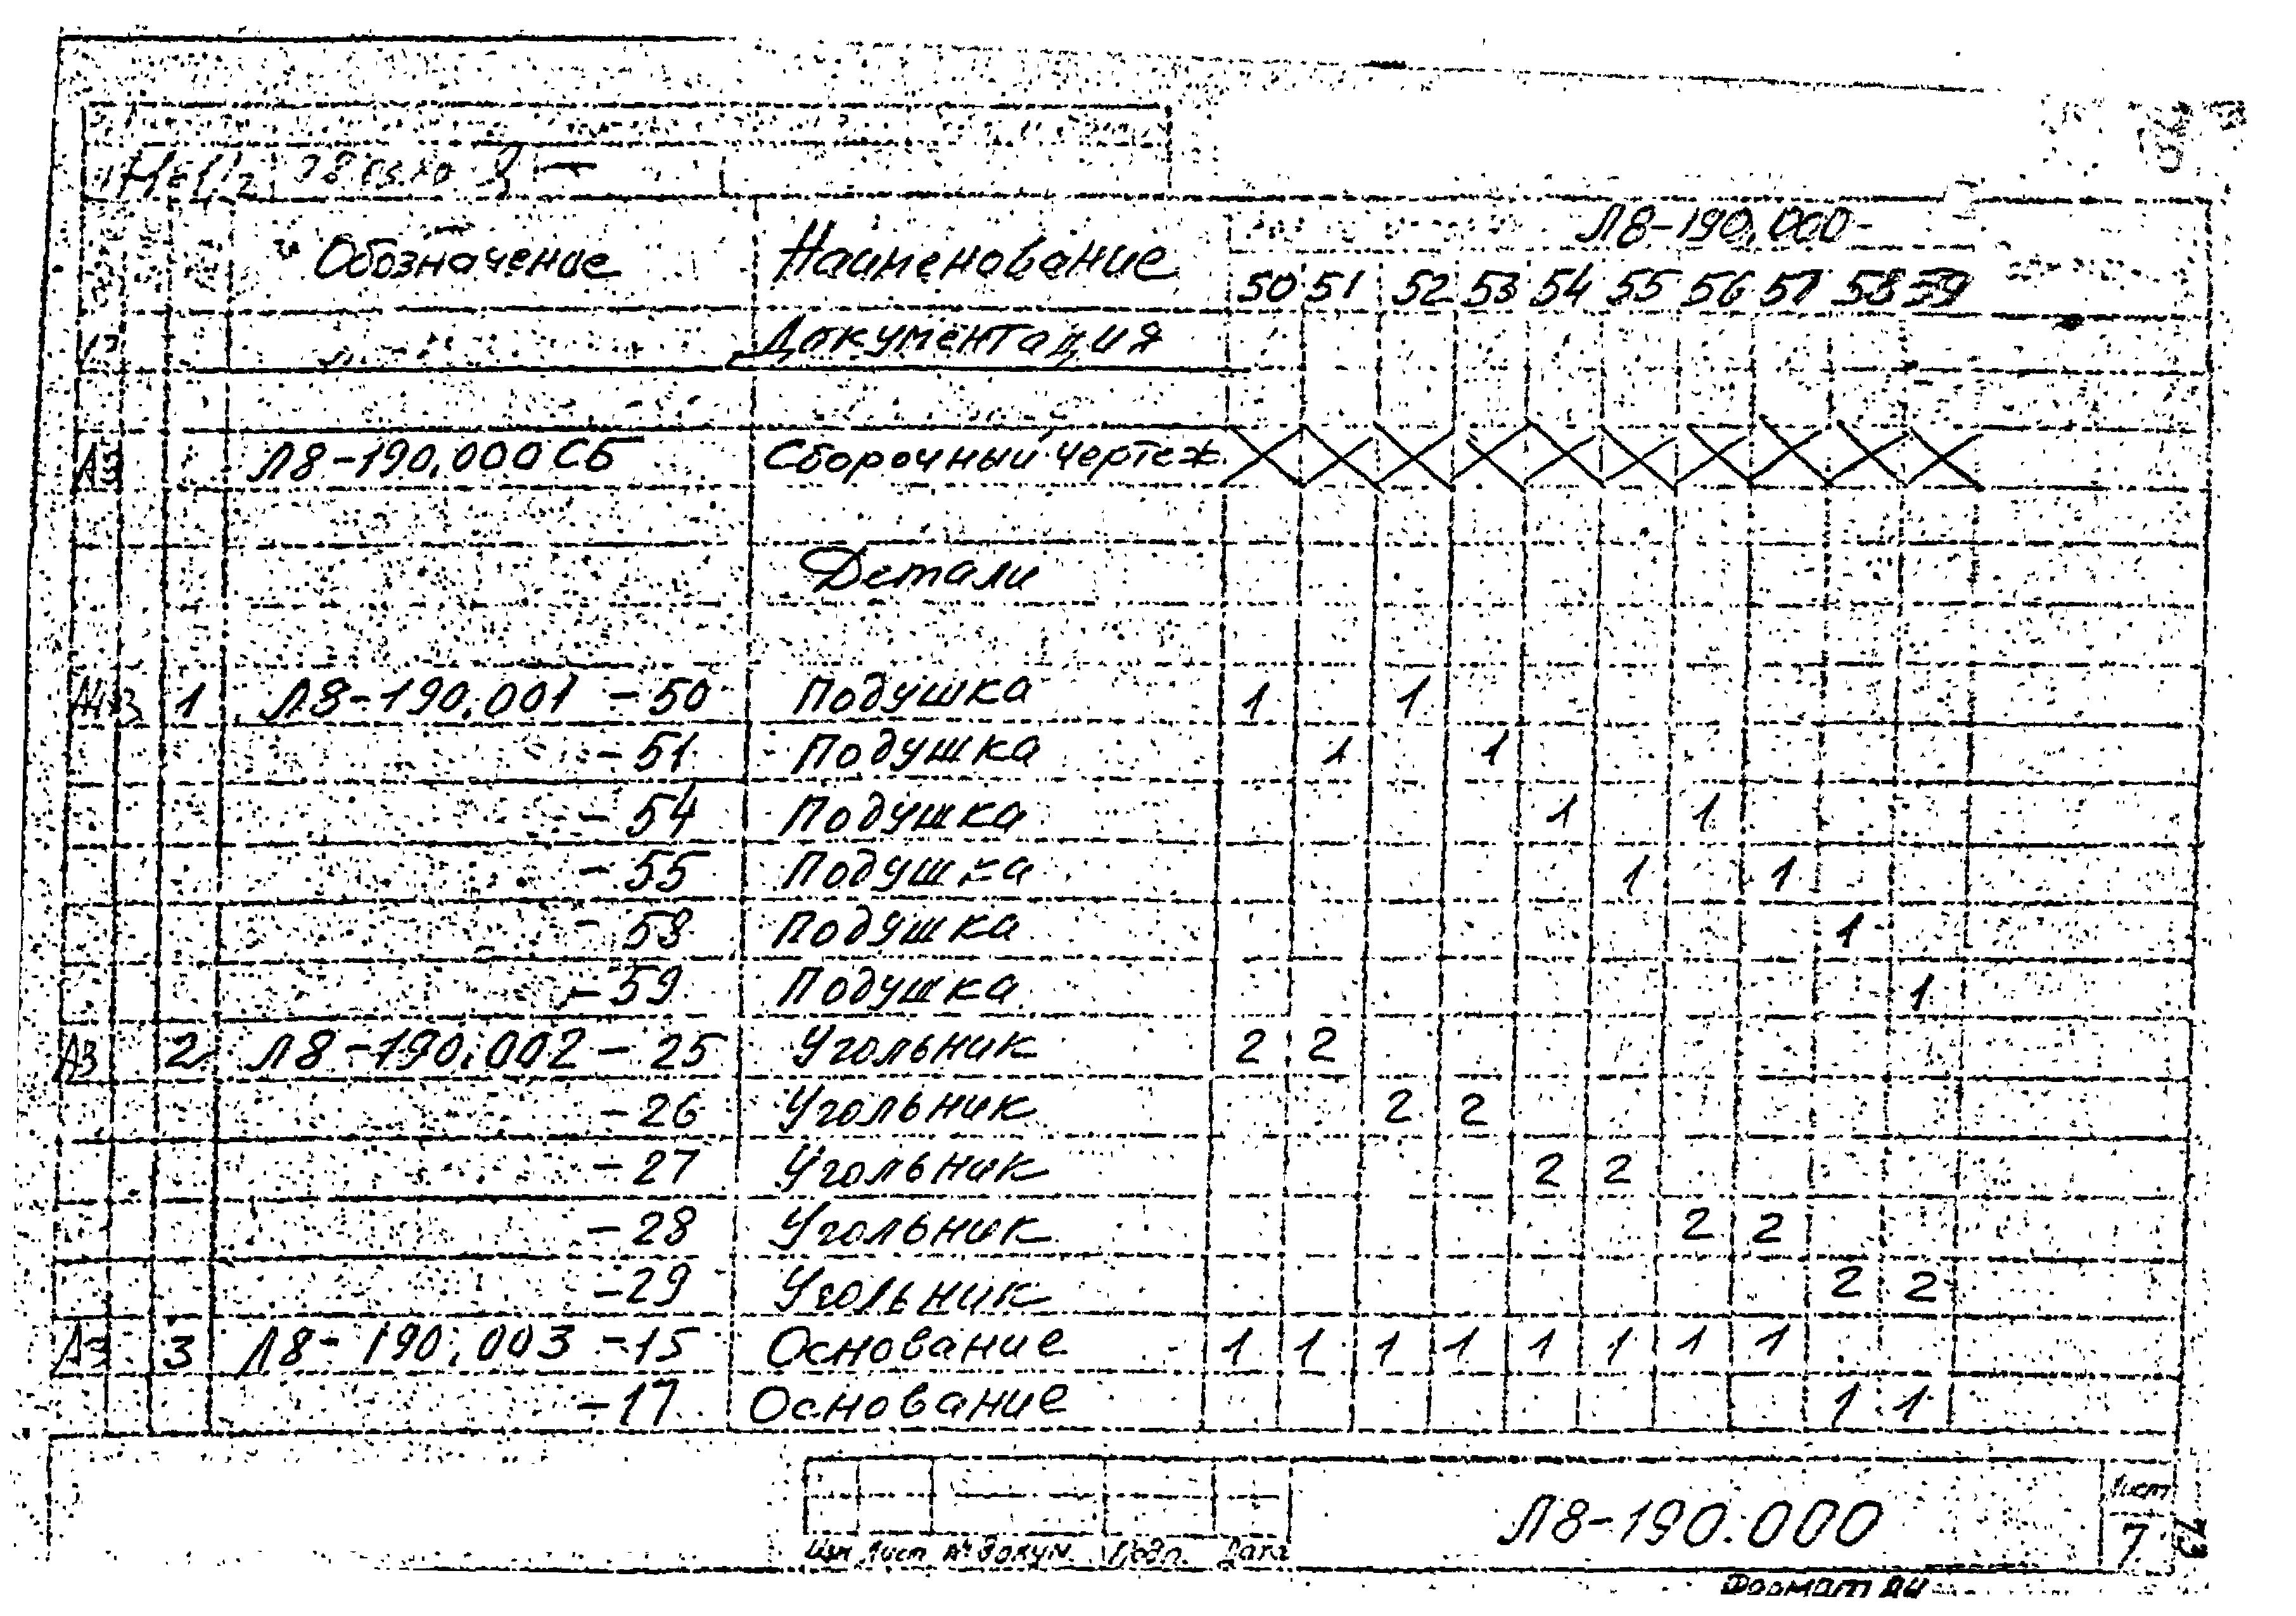 Обозначение Наименование Л8-190.000-
50 51 52 53 54 55 56 57 58 59
Документация
А3 Л8-190.000 СБ Сборочный чертеж X X X X X X X X X X
Детали
1 Л8-190.001 -50 Подушка 1 1
-51 Подушка 1 1
-54 Подушка 1 1
-55 Подушка 1 1
-58 Подушка 1
-59 Подушка 1
А3 2 Л8-190.002 -25 Угольник 2 2
-26 Угольник 2 2
-27 Угольник 2 2
-28 Угольник 2 2
-29 Угольник 2 2
А3 3 Л8-190.003 -15 Основание 1 1 1 1 1 1 1 1
-17 Основание 1 1
Л8-190.000
Лист
7
Изм Лист № докум. Подп. Дата
Формат А4
73